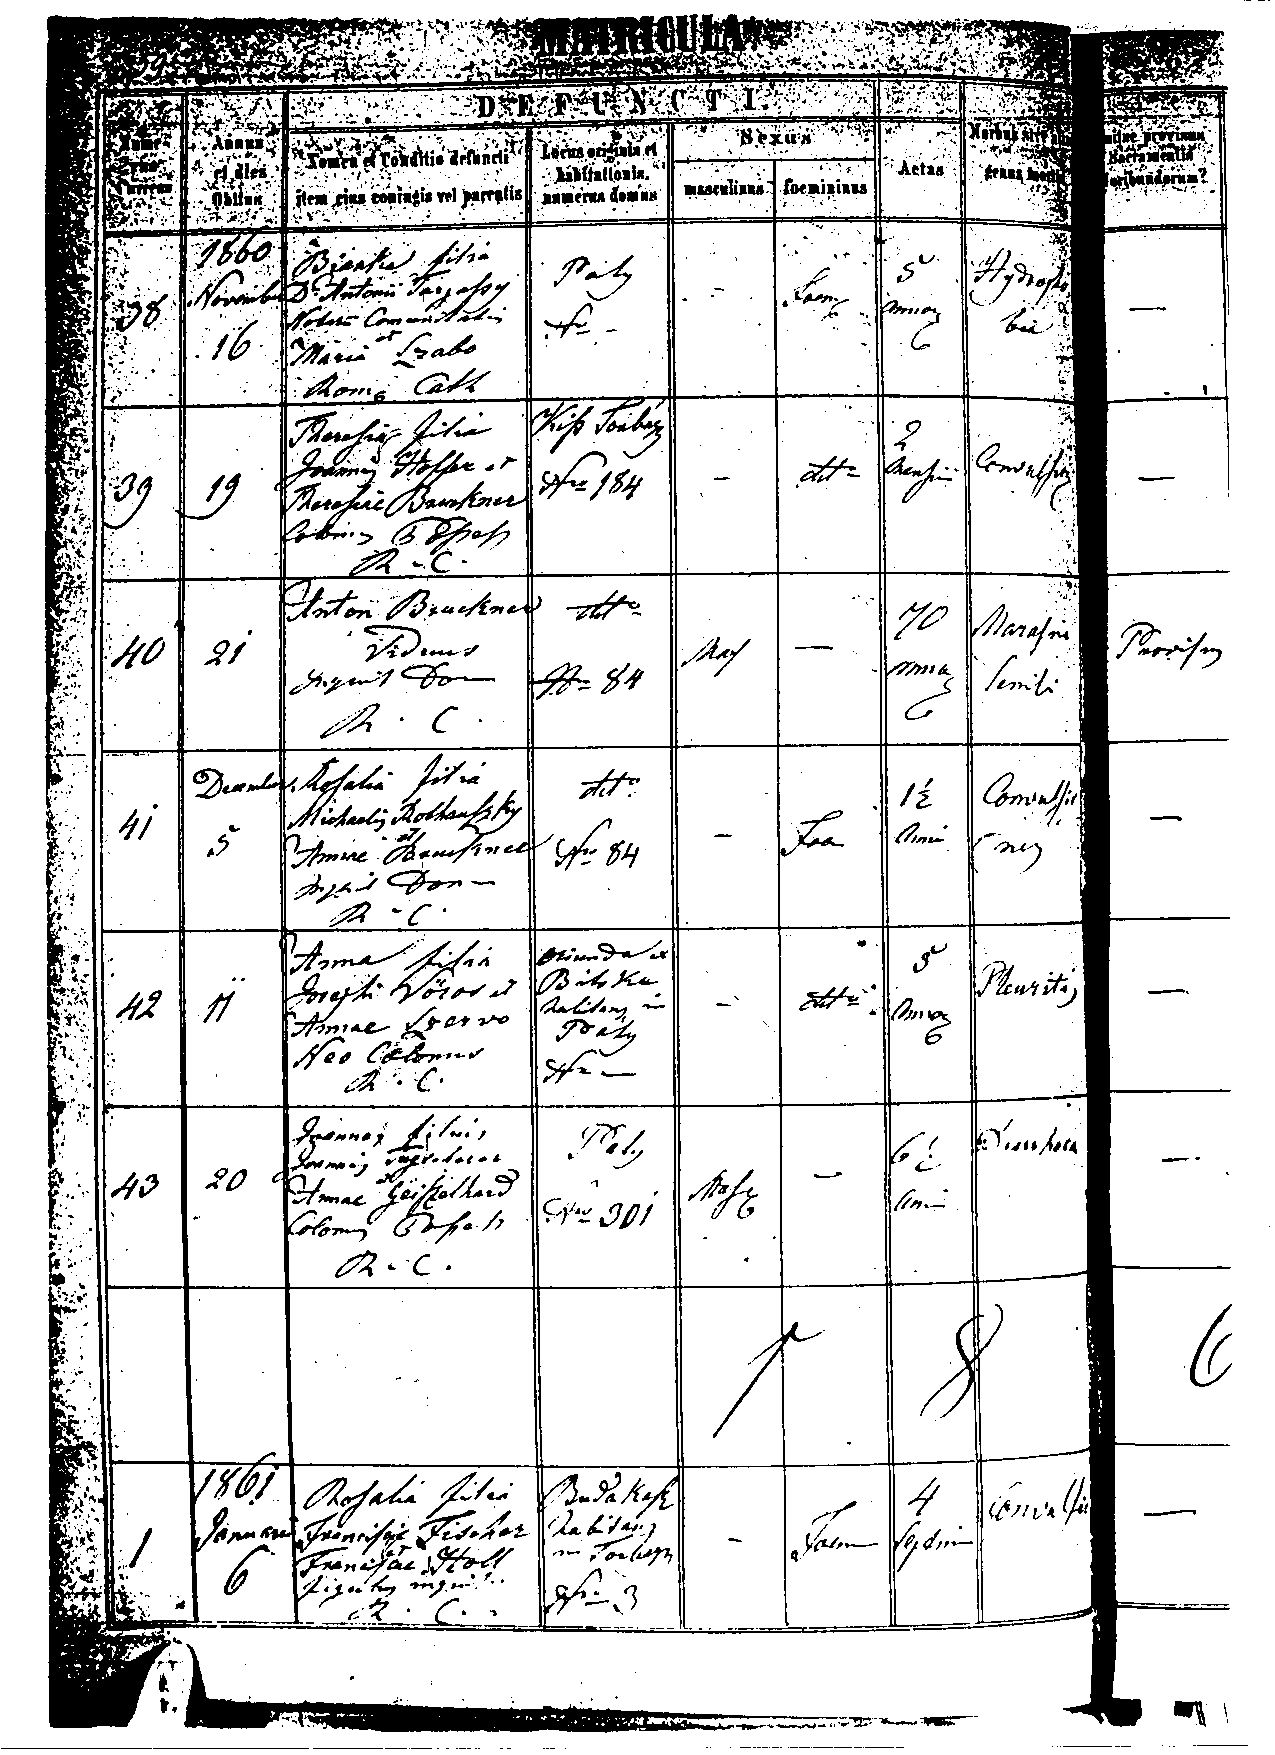 MATRICULA
DEFUNCTI
Numerus currens
Annus et dies Obitus
Nomen et Conditio defuncti
item ejus coniugis vel parentis
Locus originis et
habitationis,
numerus domus
Sexus
masculinus
foemininus
Aetas
Morbus sive
genus mortis
provisus
Sacramentis
moribundorum?
38
1860
November
16
Bianka filia
D. Antonii
Maria et Szabo
Rom. Cath
Páty
Nro -
-
Foem
5
annor
Hydrop
—
39
19
Theresia filia
Joannis Hoffer et
Theresiae Bruckner
R. C.
Kiss Torbágy
Nro 184
-
dtto
2
Mensium
Convulsio
—
40
21
Anton Bruckner
Viduus
Inquil Dom
R. C.
dtto
Nro 84
Mas
—
70
annor
Marasmus
Senilis
Provisus
41
December
5
Rosalia filia
Michaelis
Annae et Bruckner
Inquil Dom
R. C.
dtto
Nro 84
-
Foe
1½
Anni
Convulsio
nes
—
42
11
Anna filia
Josephi Vörös et
Annae Szervo
Neo Colonus
R. C.
oriunda ex
Bitske
habitans in
Páty
Nro —
-
dtto
5
Annor
Pleuritis
—
43
20
Joannes filius
Joannis
Annae et Geiszelhard
Colonus
R. C.
Páty
Nro 301
Mas
—
6½
Anni
Diarrhoea
—
1
8
6
1
1861
Januar
6
Rosalia filia
Francisci Fischer
Franciscae Holl
R. C.
Buda Kesz
habitans
in Torbágy
Nro 3
-
Foem
4
Septim
Convulsio
—